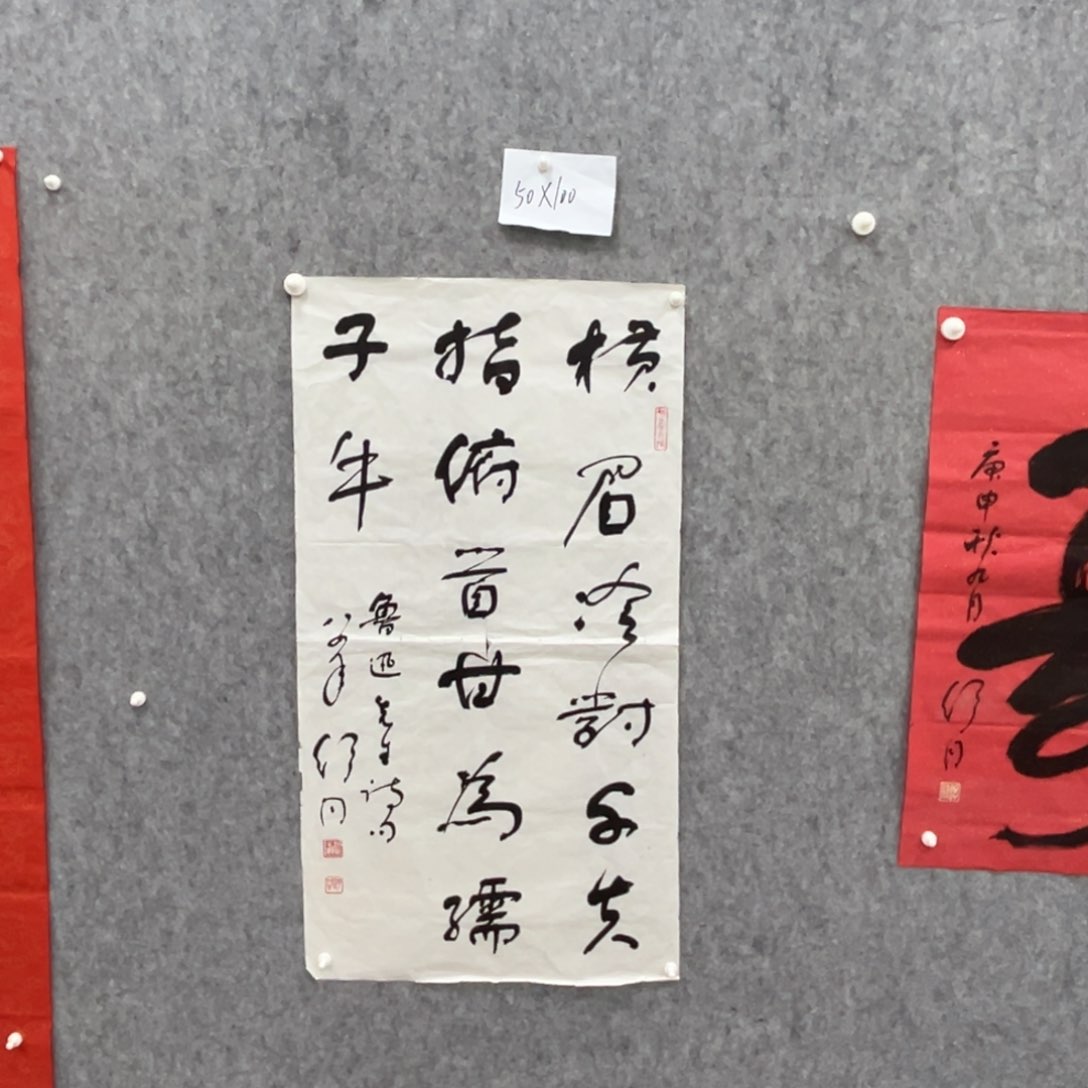 50X100
横眉冷對千夫
指俯首甘為孺
子牛
魯迅先生詩句
庚申秋九月